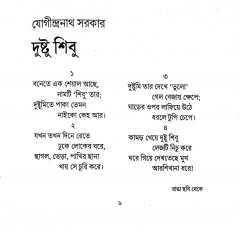 যোগীন্দ্রনাথ সরকার
দুষ্টু শিবু
১
বনেতে এক শেয়াল আছে,
নামটি 'শিবু' তার;
দুষ্টুমিতে পাকা তেমন
নাইকো কেহ আর।
২
যখন তখন দিনে রেতে
ঢুকে লোকের ঘরে,
ছাগল, ভেড়া, পাখির ছানা
খায় সে চুরি করে।
৩
দুষ্টুমি তার দেখে 'ভুলো'
গেল বেজায় ক্ষেপে;
ঘাড়ের ওপর লাফিয়ে উঠে
ধরলে টুপি চেপে।
৪
কামড় খেয়ে দুষ্টু শিবু
লেজটি নিচু করে
ঘরে গিয়ে দেখতেছে মুখ
আরশিখানা ধরে!
রাঙা ছবি থেকে
৯